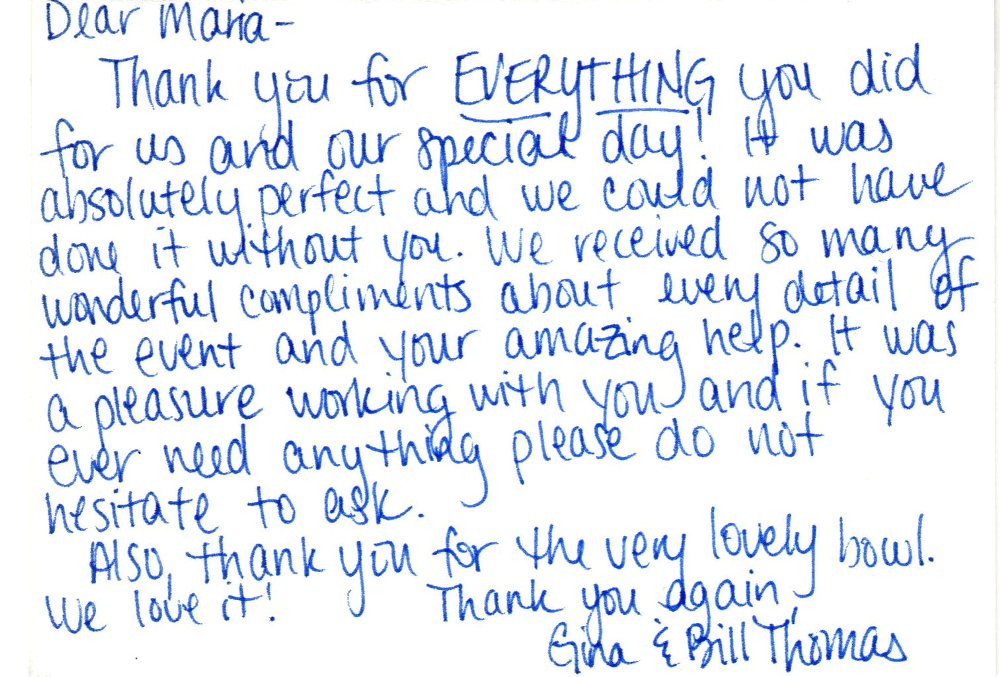 Dear Maria-
Thank you for EVERYTHING you did
for us and our special day! It was
absolutely perfect and we could not have
done it without you. We received so many
wonderful compliments about every detail of
the event and your amazing help. It was
a pleasure working with you and if you
ever need anything please do not
hesitate to ask.
Also, thank you for the very lovely bowl.
We love it! Thank you again,
Gina & Bill Thomas